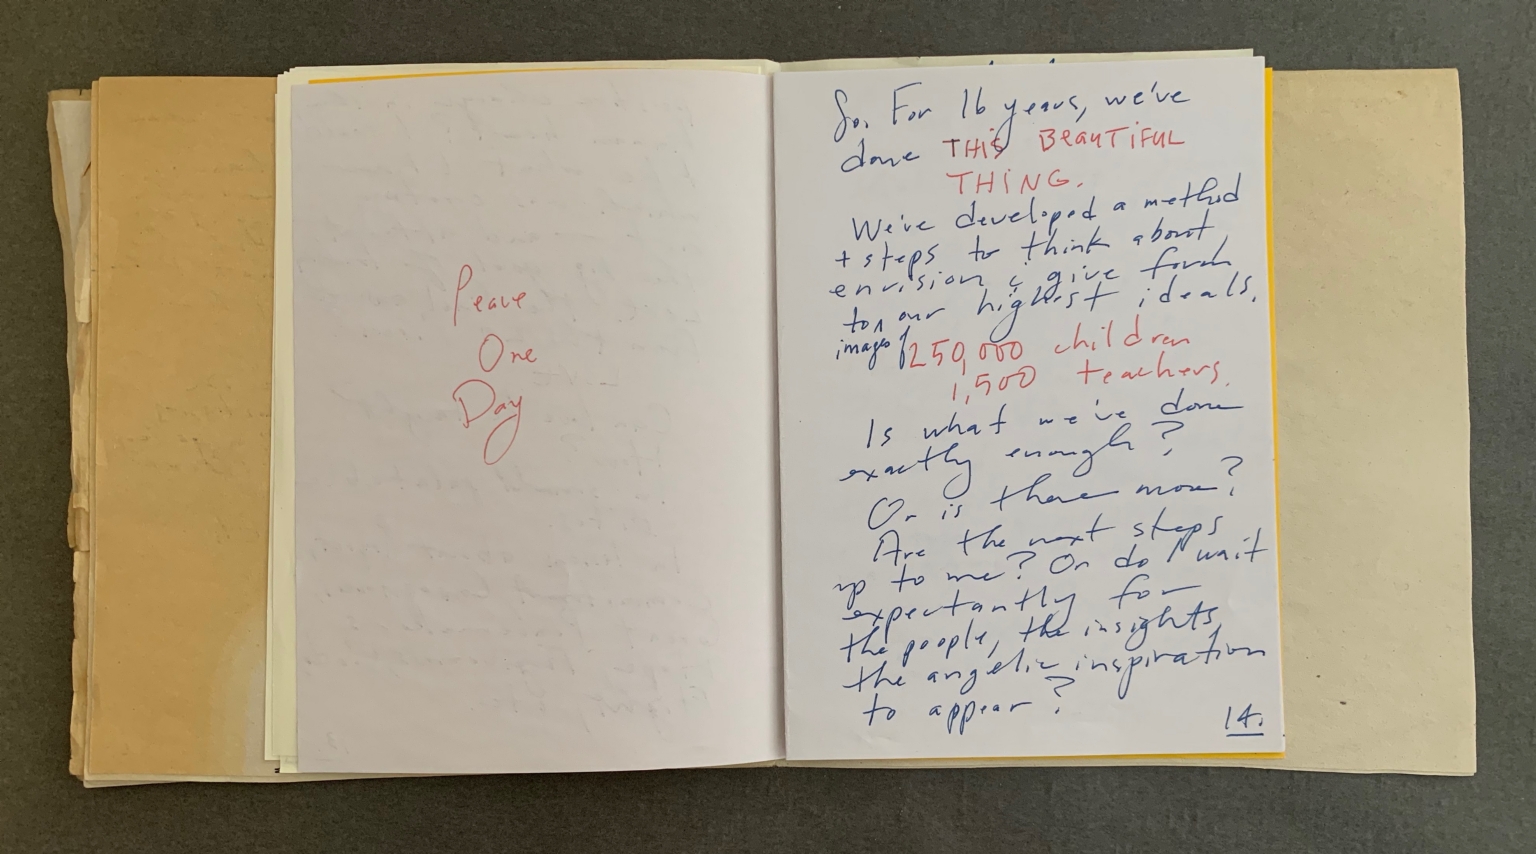 Peace
One
Day
So. For 16 years, we've
done THiS BeauTiFUL
THiNG.
We've developed a method
+ steps to think about
envision & give form
to our highest ideals.
images of 250,000 children
1,500 teachers.
Is what we've done
exactly enough?
Or is there more?
Are the next steps
up to me? Or do I wait
expectantly for
the people, the insights,
the angelic inspiration
to appear?
14.